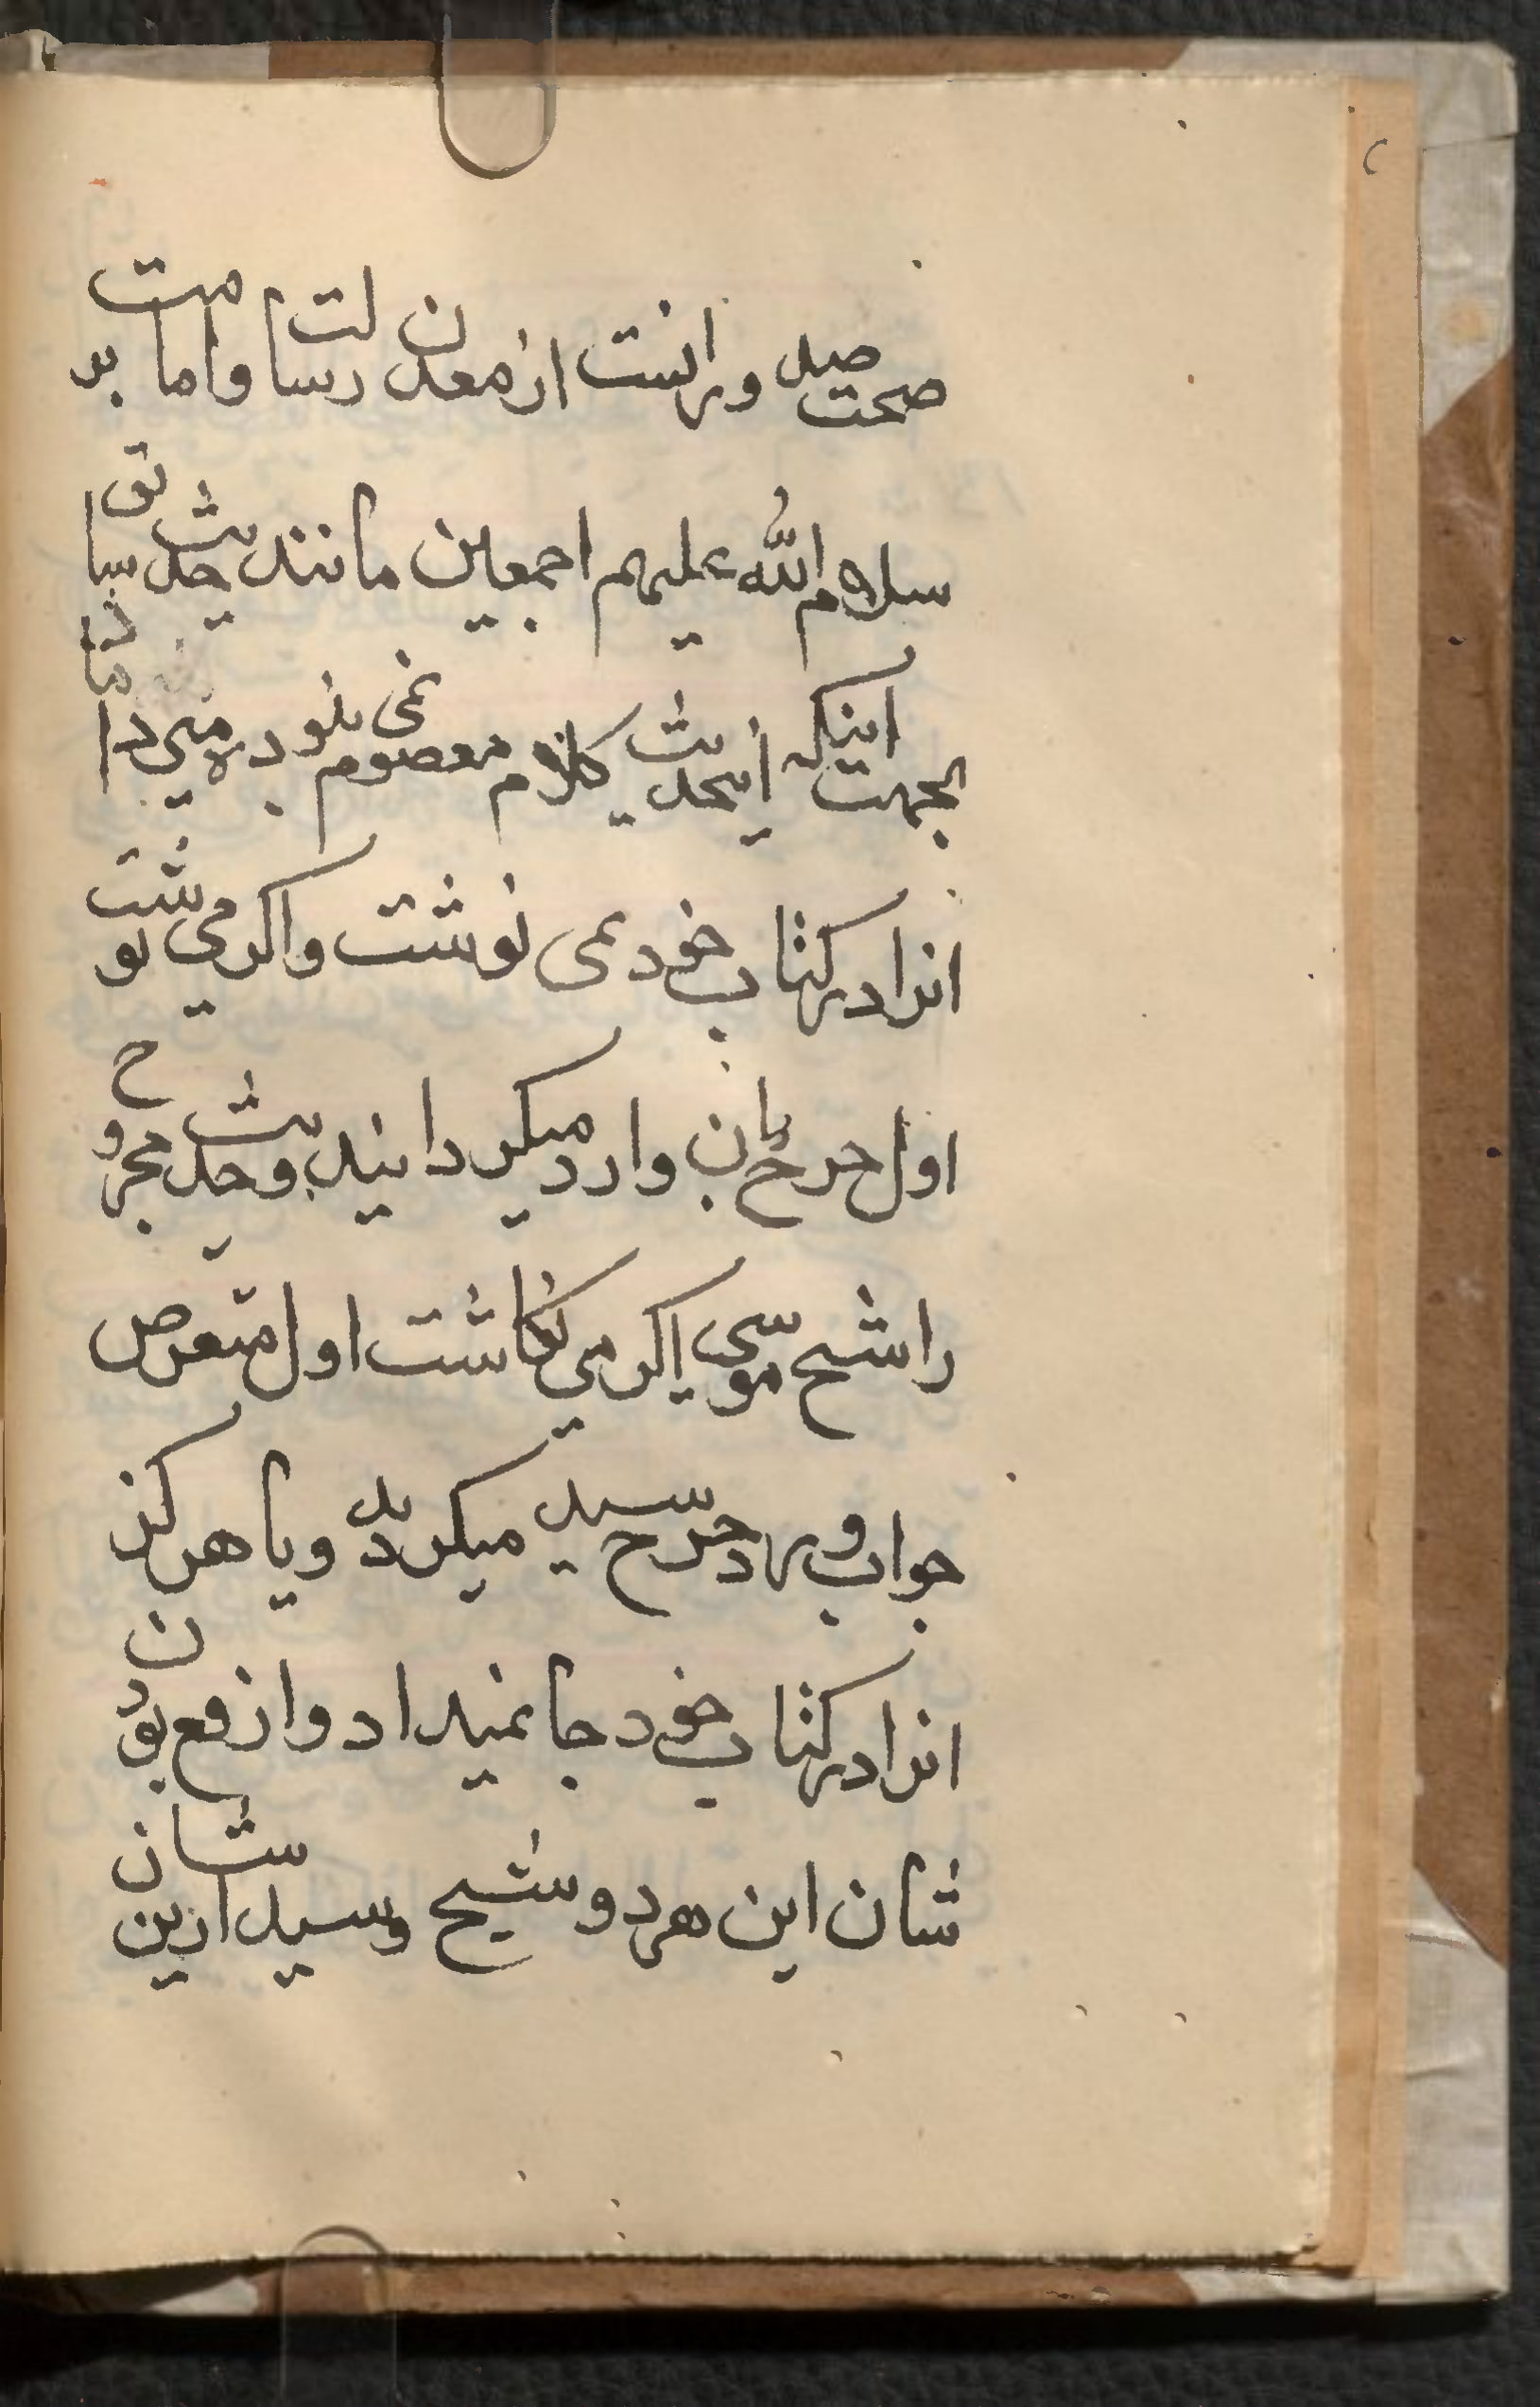 صحت صدور انست از معدن رسالت وامامت بر
سلام الله علیهم اجمعین مانند حدیث سابق
بجهت اینکه اینحدیث کلام معصوم نمی بود هر میدادند ما
انرا در کتاب خود نمی نوشت واکر می نوشت
اول جرح بان وارد میکردانید وحدیث مجروح
را شیخ موسی اکر می نکاشت اول متعرض
جواب و رد جرح سید میکردید ویا هرکز
انرا در کتاب خود جا نمیداد وارفع بودن
شان این هر دو شیخ وسید ازین شان